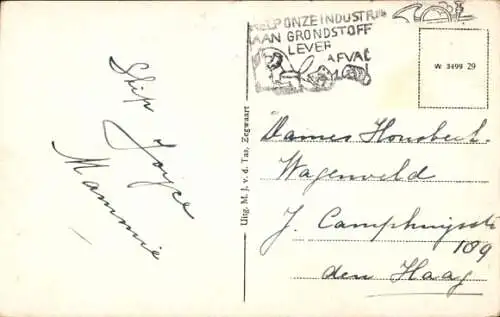 HELP ONZE INDUSTRIE
AAN GRONDSTOFF
LEVER
AFVAL
W 3499 29
Stip
Joyce
Mammie
Uitg. M. J. v. d. Tas, Zegwaart
Dames Honsbeek
Wagenveld
J. Camphuijsstr
189
den Haag